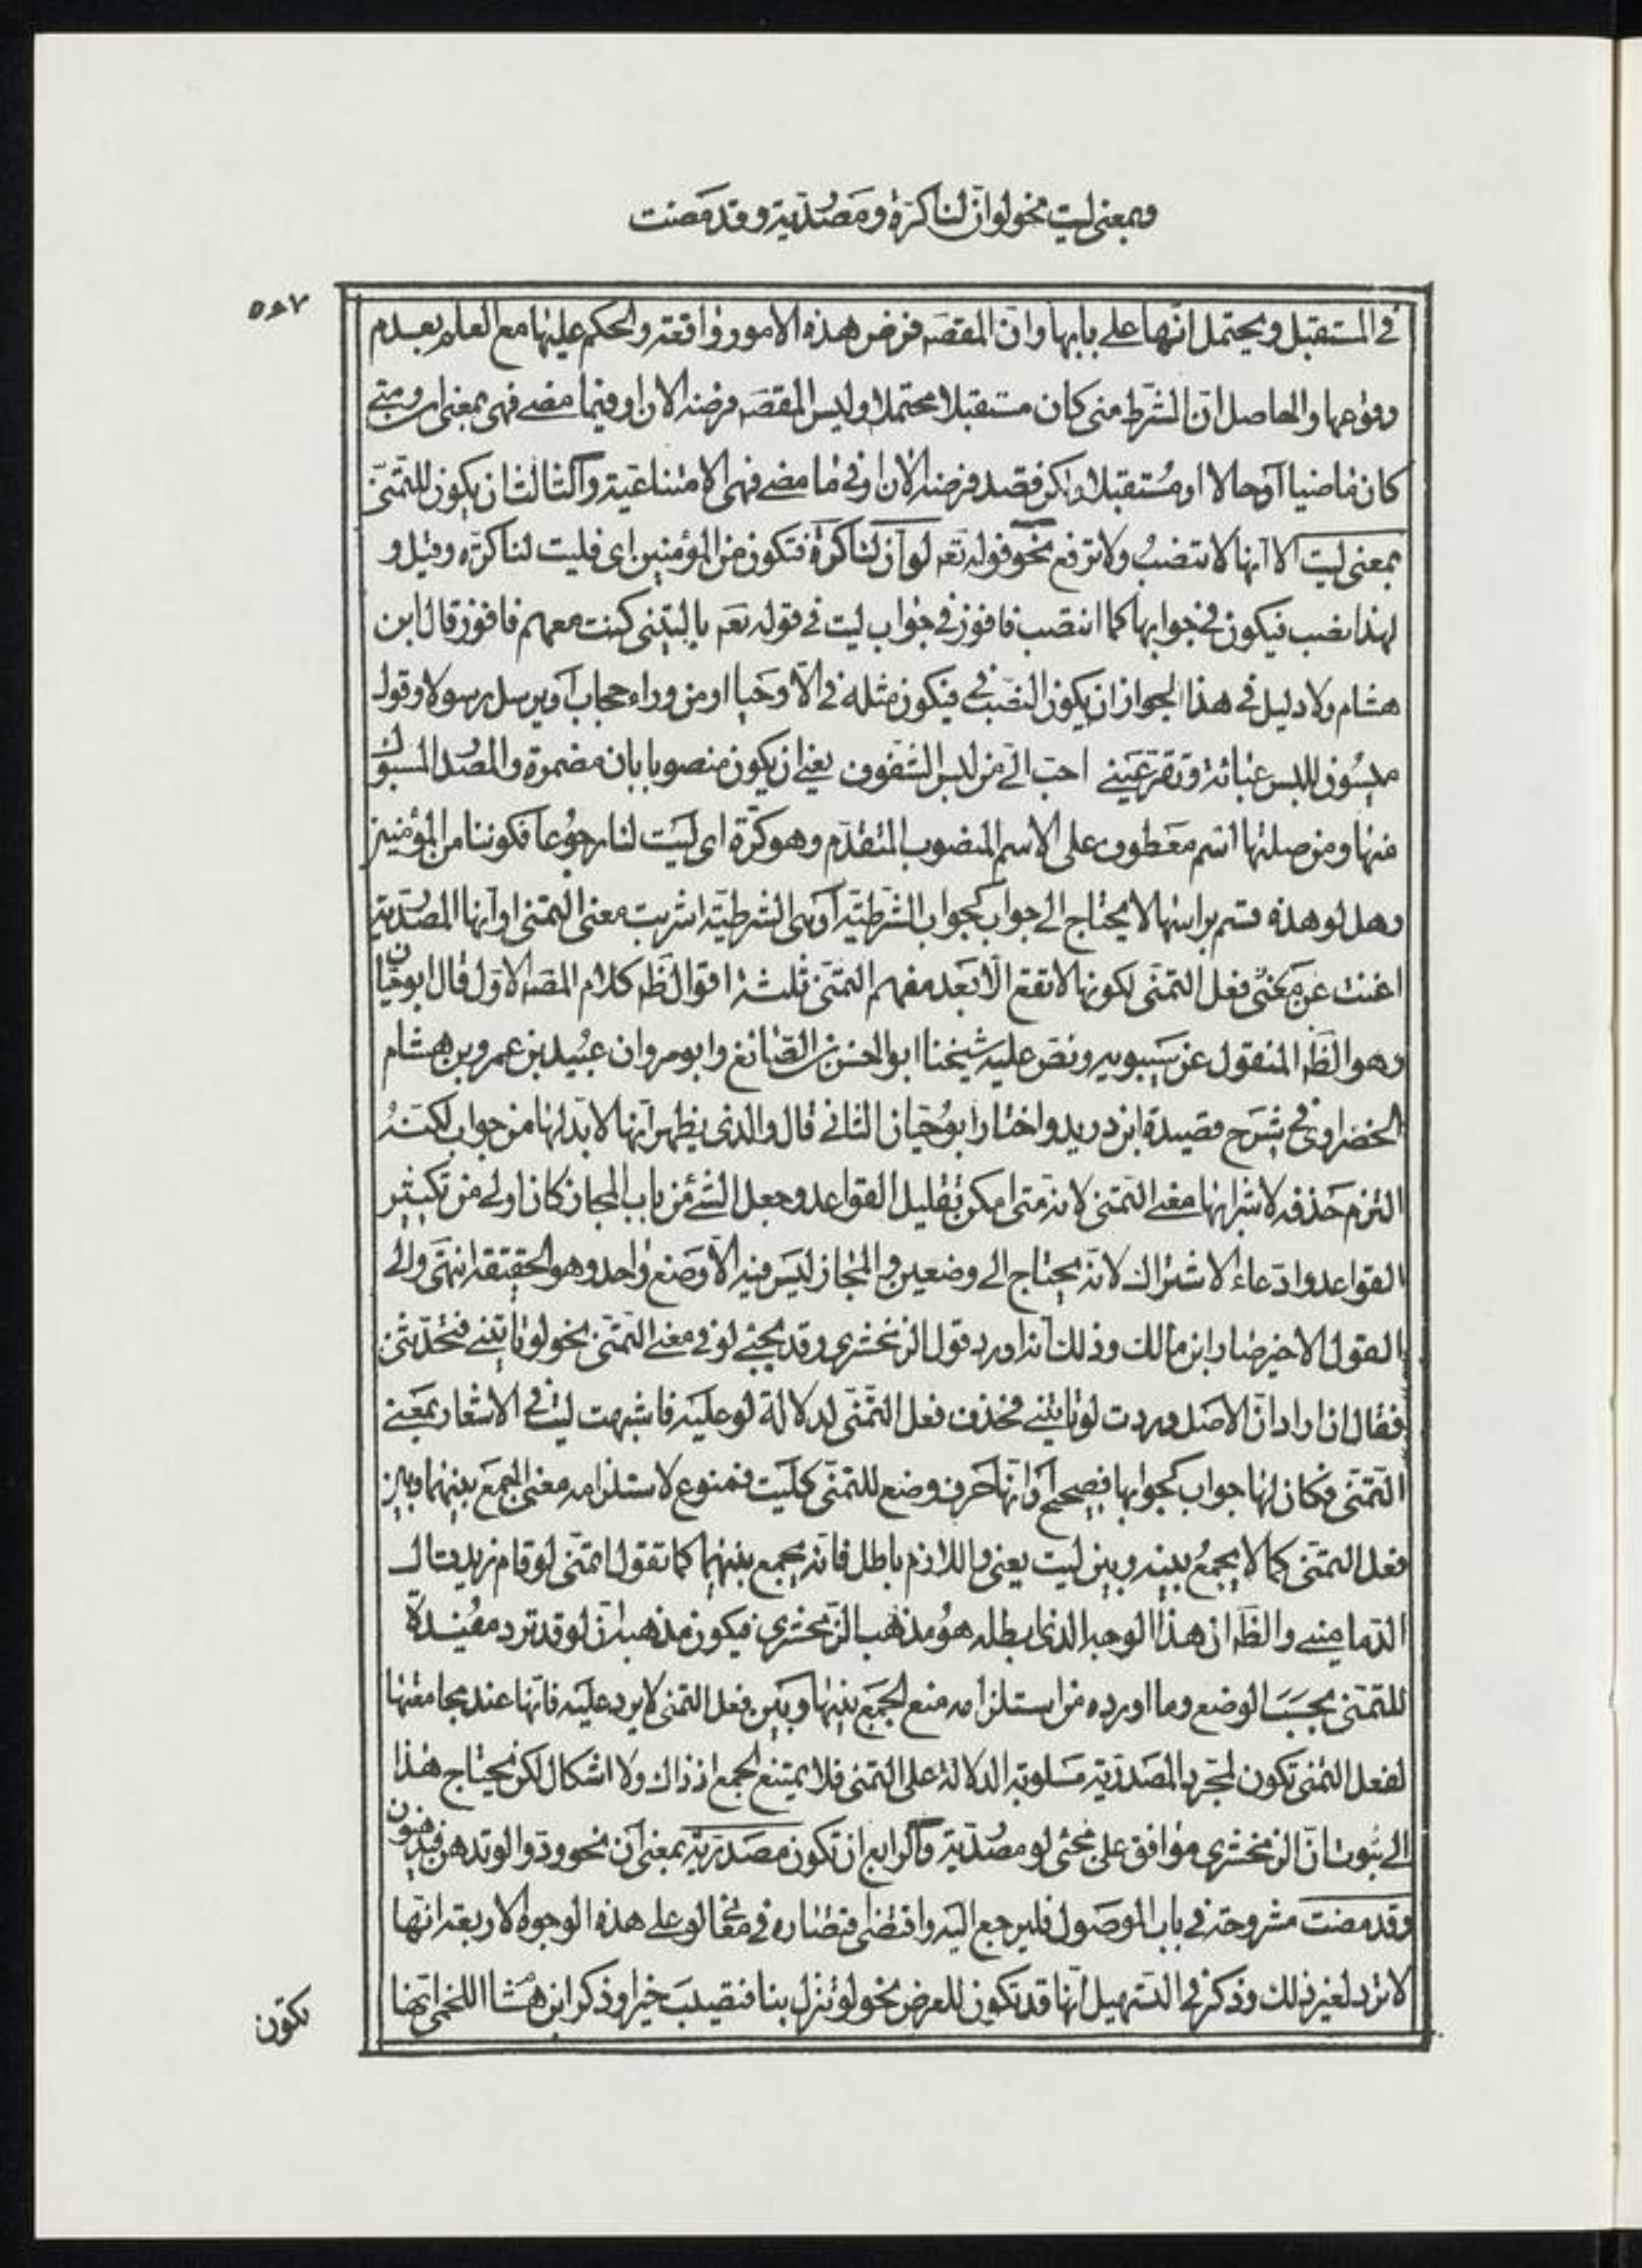 وبمعنى ليت نحو لو ان لنا كرة ومصدرية وقد مضت
٥٨٧
في المستقبل ويحتمل انها على بابها وان المقصَه فرض هذه الامور واقعة والحكم عليها مع العلم بعدم
وقوعها والحاصل ان الشرط متى كان مستقبلا محتملا وليس المقصَه فرضه الان او فيما مضى فهى بمعنى ان ومتى
كان ماضيا او حالا او مستقبلا ولكن قصد فرضه الان او في ما مضى فهى الامتناعية والثالث ان يكون للتمنى
بمعنى ليت الا انها لا تنصب ولا ترفع نحو قوله تعَه لو ان لنا كرة فنكون من المؤمنين اى فليت لنا كره وقيل و
لهذا نصب فيكون في جوابها كما انتصب فافوز في جواب ليت في قوله تعَه يا ليتنى كنت معهم فافوز قال ابن
هشام ولا دليل في هذا لجواز ان يكون النصب في فيكون مثله في الا وحيا او من وراء حجاب او يرسل رسولا وقول
ميسون للبس عبائة وتقر عينى احب الى من لبس الشفوف يعنى ان يكون منصوبا بان مضمرة والمصدر المسبوك
منها ومن صلتها اسم معطوف على الاسم المنصوب المتقدم وهو كرة اى ليت لنا رجوعا فكوننا من المؤمنين
وهل لو هذه قسم براسها لا يحتاج الى جواب كجواب الشرطية او هى الشرطية اشربت معنى التمنى او انها المصدرية
اغنت عن فعل التمنى لكونها لا تقع الا بعد مفهم التمنى ثلثة اقوال ظَه كلام المصَه الاول قال ابو حيان
وهو الظَه المنقول عن سيبويه ونص عليه شيخنا ابو الحسن بن الضائع وابو مروان عبيد بن عمر وبن هشام
الخضراوى في شرح قصيدة ابن دريد واختار ابو حيان الثانى قال والذى يظهر انها لا بد لها من جواب لكنه
التزم حذفه لاشرابها معنى التمنى لانه متى امكن تقليل القواعد وجعل الشئ من باب المجاز كان اولى من تكثير
القواعد وادعاء الاشتراك لانه يحتاج الى وضعين والمجاز ليس فيه الا وضع واحد وهو الحقيقة انتهى والى
القول الاخير صار ابن مالك وذلك انه اورد قول الزمخشرى وقد يجئ لو في معنى التمنى نحو لو تاتينى فتحدثنى
فقال ان اراد ان الاصل وددت لو تاتينى فحذف فعل التمنى لدلالة لو عليه فاشبهت ليت في الاشعار بمعنى
التمنى فكان لها جواب كجوابها فصحيح او انها حرف وضع للتمنى كليت فممنوع لاستلزامه معنى الجمع بينها وبين
فعل التمنى كما لا يجمع بينه وبين ليت يعنى واللازم باطل فانه يجمع بينهما كما تقول اتمنى لو قام زيد قال
الدمامينى والظَه ان هذا الوجه الذى ابطله هو مذهب الزمخشرى فيكون مذهبه ان لو قد ترد مفيدة
للتمنى بحسب الوضع وما اورده من استلزامه منع الجمع بينها وبين فعل التمنى لا يرد عليه فانها عند مجامعتها
لفعل التمنى تكون لمجرد المصدرية مسلوبة الدلالة على التمنى فلا يمتنع الجمع اذ ذاك ولا اشكال لكن يحتاج هذا
الى ثبوت ان الزمخشرى موافق على مجئ لو مصدرية والرابع ان تكون مصدرية بمعنى ان نحو ودوا لو تدهن فيدهنون
وقد مضت مشروحة في باب الموصول فليرجع اليه واقتضى اقتصاره في معانى لو على هذه الوجوه الاربعة انها
لا ترد لغير ذلك وذكر في التسهيل انها قد تكون للعرض نحو لو تنزل بنا فتصيب خيرا وذكر ابن هشام اللخمى ايضا
تكون